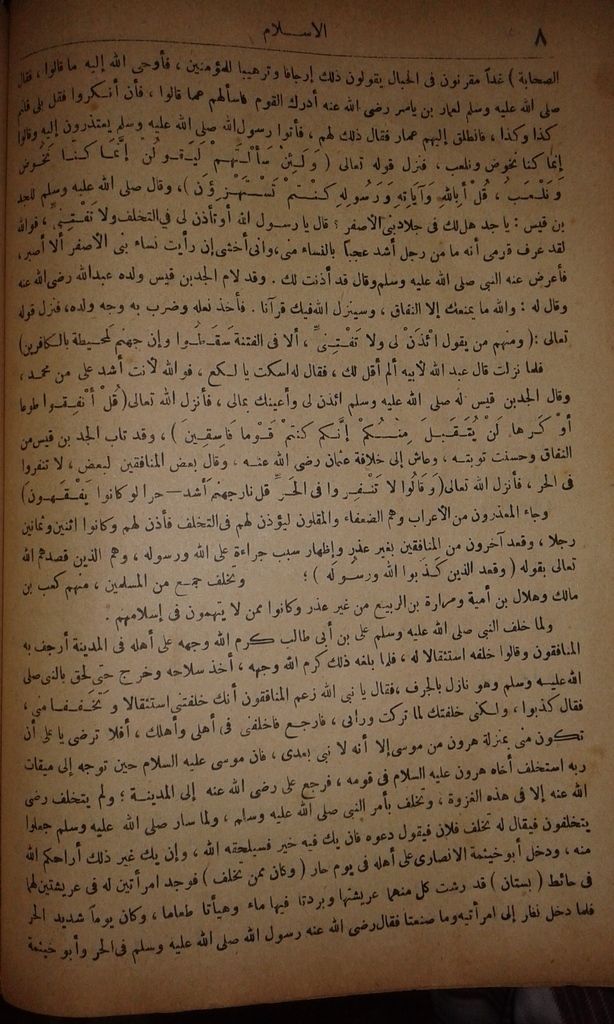 ٨
الاسلام
الصحابة ) غداً مقرنون فى الحبال يقولون ذلك إرجافا وترهيبا للمؤمنين ، فأوحى الله إليه ما قالوا ، فقال
صلى الله عليه وسلم لعمار بن ياسر رضى الله عنه أدرك القوم فاسألهم عما قالوا ، فأن أنكروا فقل بلى قلتم
كذا وكذا ، فانطلق إليهم عمار فقال ذلك لهم ، فأتوا رسول الله صلى الله عليه وسلم يعتذرون إليه وقالوا
إنما كنا نخوض ونلعب ، فنزل قوله تعالى ( وَلَئِنْ سَأَلْتَهُمْ لَيَقُولُنَّ إِنَّمَا كُنَّا نَخُوضُ
وَنَلْعَبُ ، قُلْ أَبِاللهِ وَآيَاتِهِ وَرَسُولِهِ كُنْتُمْ تَسْتَهْزِؤُنَ ) ، وقال صلى الله عليه وسلم للجد
بن قيس : يا جد هل لك فى جلاد بنى الأصفر ؟ قال يا رسول الله أو تأذن لى فى التخلف ولا تَفْتِنِّى ، فوالله
لقد عرف قومى أنه ما من رجل أشد عجباً بالنساء منى ، وانى أخشى إن رأيت نساء بنى الأصفر ألا أصبر ،
فأعرض عنه النبى صلى الله عليه وسلم وقال قد أذنت لك . وقد لام الجد بن قيس ولده عبد الله رضى الله عنه
وقال له : والله ما يمنعك إلا النفاق ، وسينزل الله فيك قرآنا . فأخذ نعله وضرب به وجه ولده ، فنزل قوله
تعالى : ( ومنهم من يقول ائْذَنْ لى ولا تَفْتِنِّى ، ألا فى الفتنة سَقَطُوا وإن جهنم لمحيطة بالكافرين )
فلما نزلت قال عبد الله لأبيه ألم أقل لك ، فقال له اسكت يا لكع ، فوالله لأنت أشد على من محمد ،
وقال الجد بن قيس له صلى الله عليه وسلم ائذن لى وأعينك بمالى ، فأنزل الله تعالى ( قُلْ أَنْفِقُوا طوعا
أَوْ كَرْها لَنْ يُتَقَبَلَ مِنْكُمْ إنَّكُم كنتمْ قَوْماً فَاسِقينَ ) ، وقد تاب الجد بن قيس من
النفاق وحسنت توبته ، وعاش إلى خلافة عثمان رضى الله عنه . وقال بعض المنافقين لبعض ، لا تنفروا
فى الحر ، فأنزل الله تعالى ( وَقَالُوا لَا تَنْفِروا فى الحَرِّ قل نار جهنم أشد — حرا لو كانوا يَفْقَهون )
وجاء المعذرون من الأعراب وهم الضعفاء والمقلون ليؤذن لهم فى التخلف فأذن لهم وكانوا اثنين وثمانين
رجلا ، وقعد آخرون من المنافقين بغير عذر وإظهار سبب جراءة على الله ورسوله ، وهم الذين قصدهم الله
تعالى بقوله ( وقعد الذين كَذَبوا الله ورسُولَه ) ؛ وتخلف جمع من المسلمين ، منهم كعب بن
مالك وهلال بن أمية ومرارة بن الربيع من غير عذر وكانوا ممن لا يتهمون فى إسلامهم .
ولما خلف النبى صلى الله عليه وسلم على بن أبى طالب كرم الله وجهه على أهله فى المدينة أرجف به
المنافقون وقالوا خلفه استثقالا له ، فلما بلغه ذلك كرم الله وجهه ، أخذ سلاحه وخرج حتى لحق بالنبى صلى
الله عليه وسلم وهو نازل بالجرف ، فقال يا نبى الله زعم المنافقون أنك خلفتنى استثقالا وتَخَفُّفا منى ،
فقال كذبوا ، ولكنى خلفتك لما تركت ورائى ، فارجع فاخلفنى فى أهلى وأهلك ، أفلا ترضى يا على أن
تكون منى بمنزلة هرون من موسى إلا أنه لا نبى بعدى ، فان موسى عليه السلام حين توجه إلى ميقات
ربه استخلف أخاه هرون عليه السلام فى قومه ، فرجع على رضى الله عنه إلى المدينة ؛ ولم يتخلف رضى
الله عنه إلا فى هذه الغزوة ، وتخلف بأمر النبى صلى الله عليه وسلم ، ولما سار صلى الله عليه وسلم جعلوا
يتخلفون فيقال له تخلف فلان فيقول دعوه فان يك فيه خير فسيلحقه الله ، وإن يك غير ذلك أراحكم الله
منه ، ودخل أبو خيثمة الانصارى على أهله فى يوم حار ( وكان ممن تخلف ) فوجد امرأتين له فى عريشتين لهما
فى حائط ( بستان ) قد رشت كل منهما عريشتها وبردتا فيها ماء وهيأتا طعاما ، وكان يوماً شديد الحر
فلما دخل نظر إلى امرأتيه وما صنعتا فقال رضى الله عنه رسول الله صلى الله عليه وسلم فى الحر وأبو خيثمة